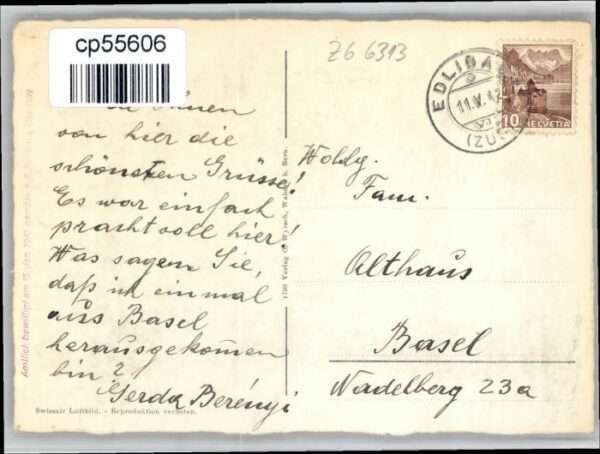 cp55606
Z6 6313
EDLIBA
11.V.42
(ZUG)
10 HELVETIA
Ihnen
von hier die
schönsten Grüsse!
Es war einfach
prachtvoll hier!
Was sagen Sie,
daß ich einmal
aus Basel
herausgekom̄en
bin?
Gerda Berényi
Wohlg.
Fam.
Althaus
Basel
Nadelberg 23a
Amtlich bewilligt am
Verlag G. Wyrsch, b. Bern.
Swissair Luftbild. - Reproduktion verboten.